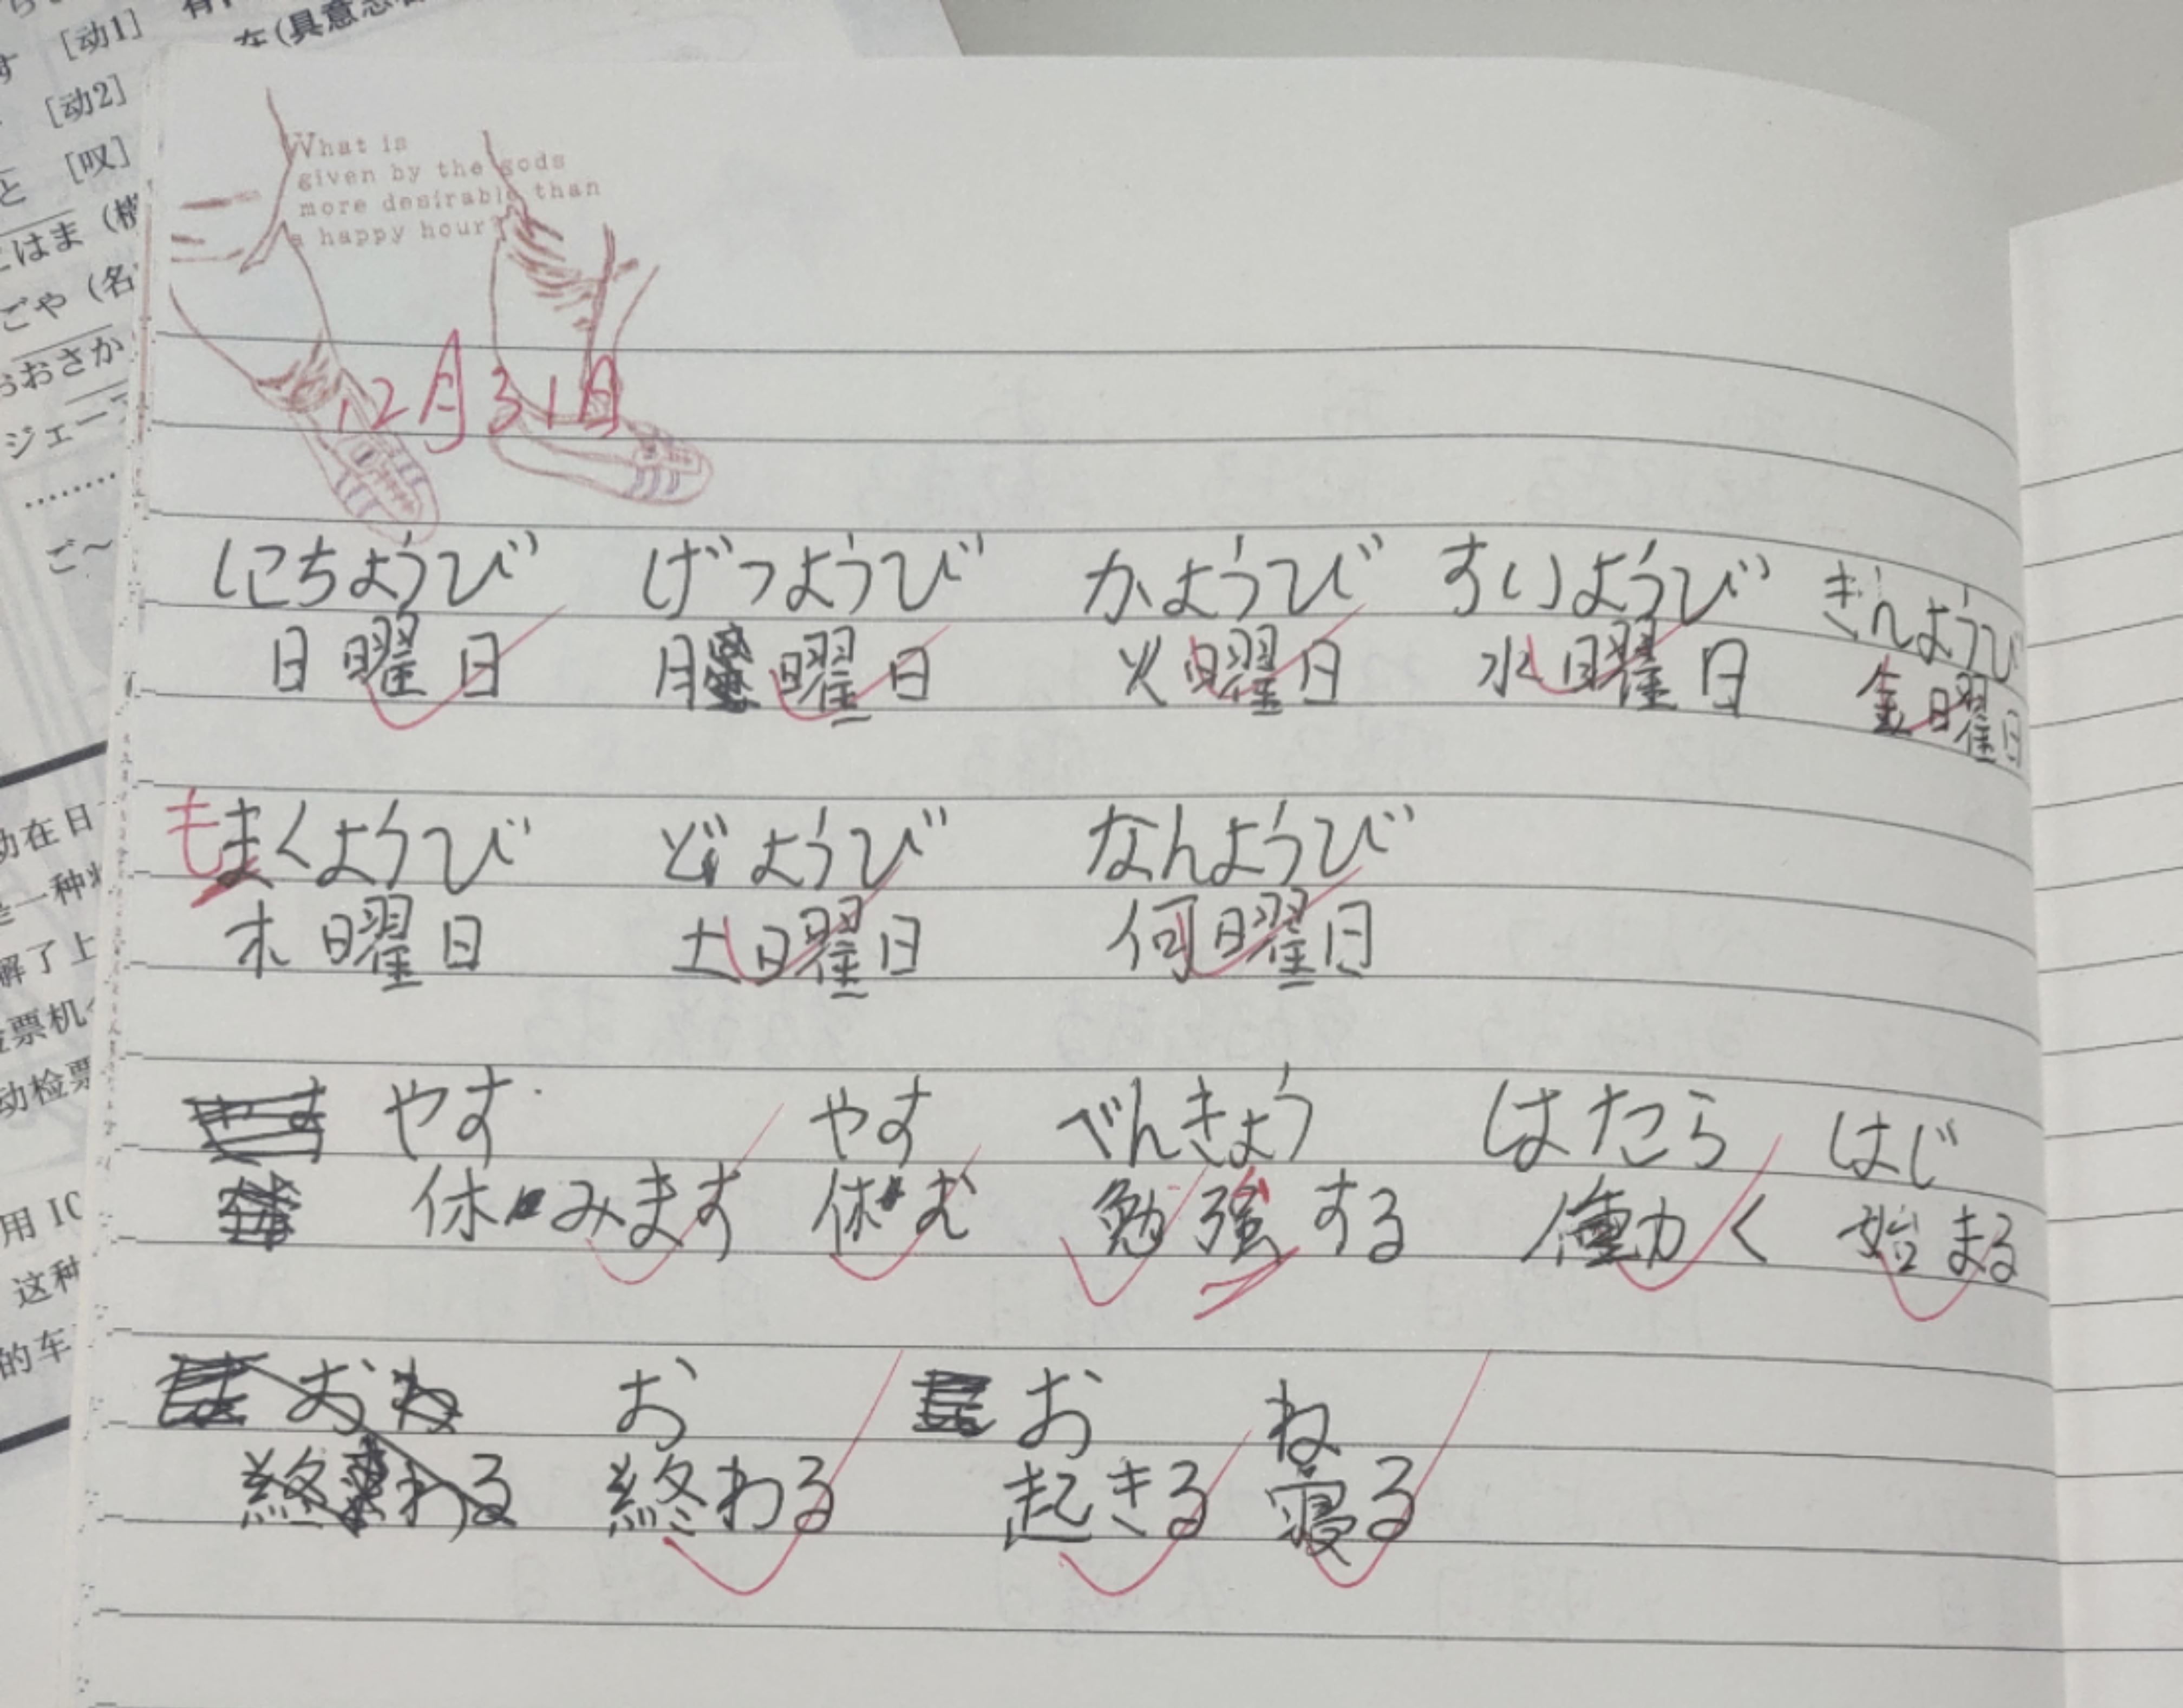 [动1]
在(具意志
[动2]
と [叹]
What is
given by the gods
more desirable than
a happy hour?
こはま (横
ごや (名
おおさか
ジェー
………
ご～
12月31日
にちようび げつようび かようび すいようび きんようび
日曜日 月曜日 火曜日 水曜日 金曜日
も まくようび どようび なんようび
木曜日 土曜日 何曜日
やす やす べんきょう はたら はじ
休みます 休む 勉強する 働く 始まる
おわ お お ね
終わる 終わる 起きる 寝る
动在日
是一种
解了上
票机
动检票
用 IC
这种
的车